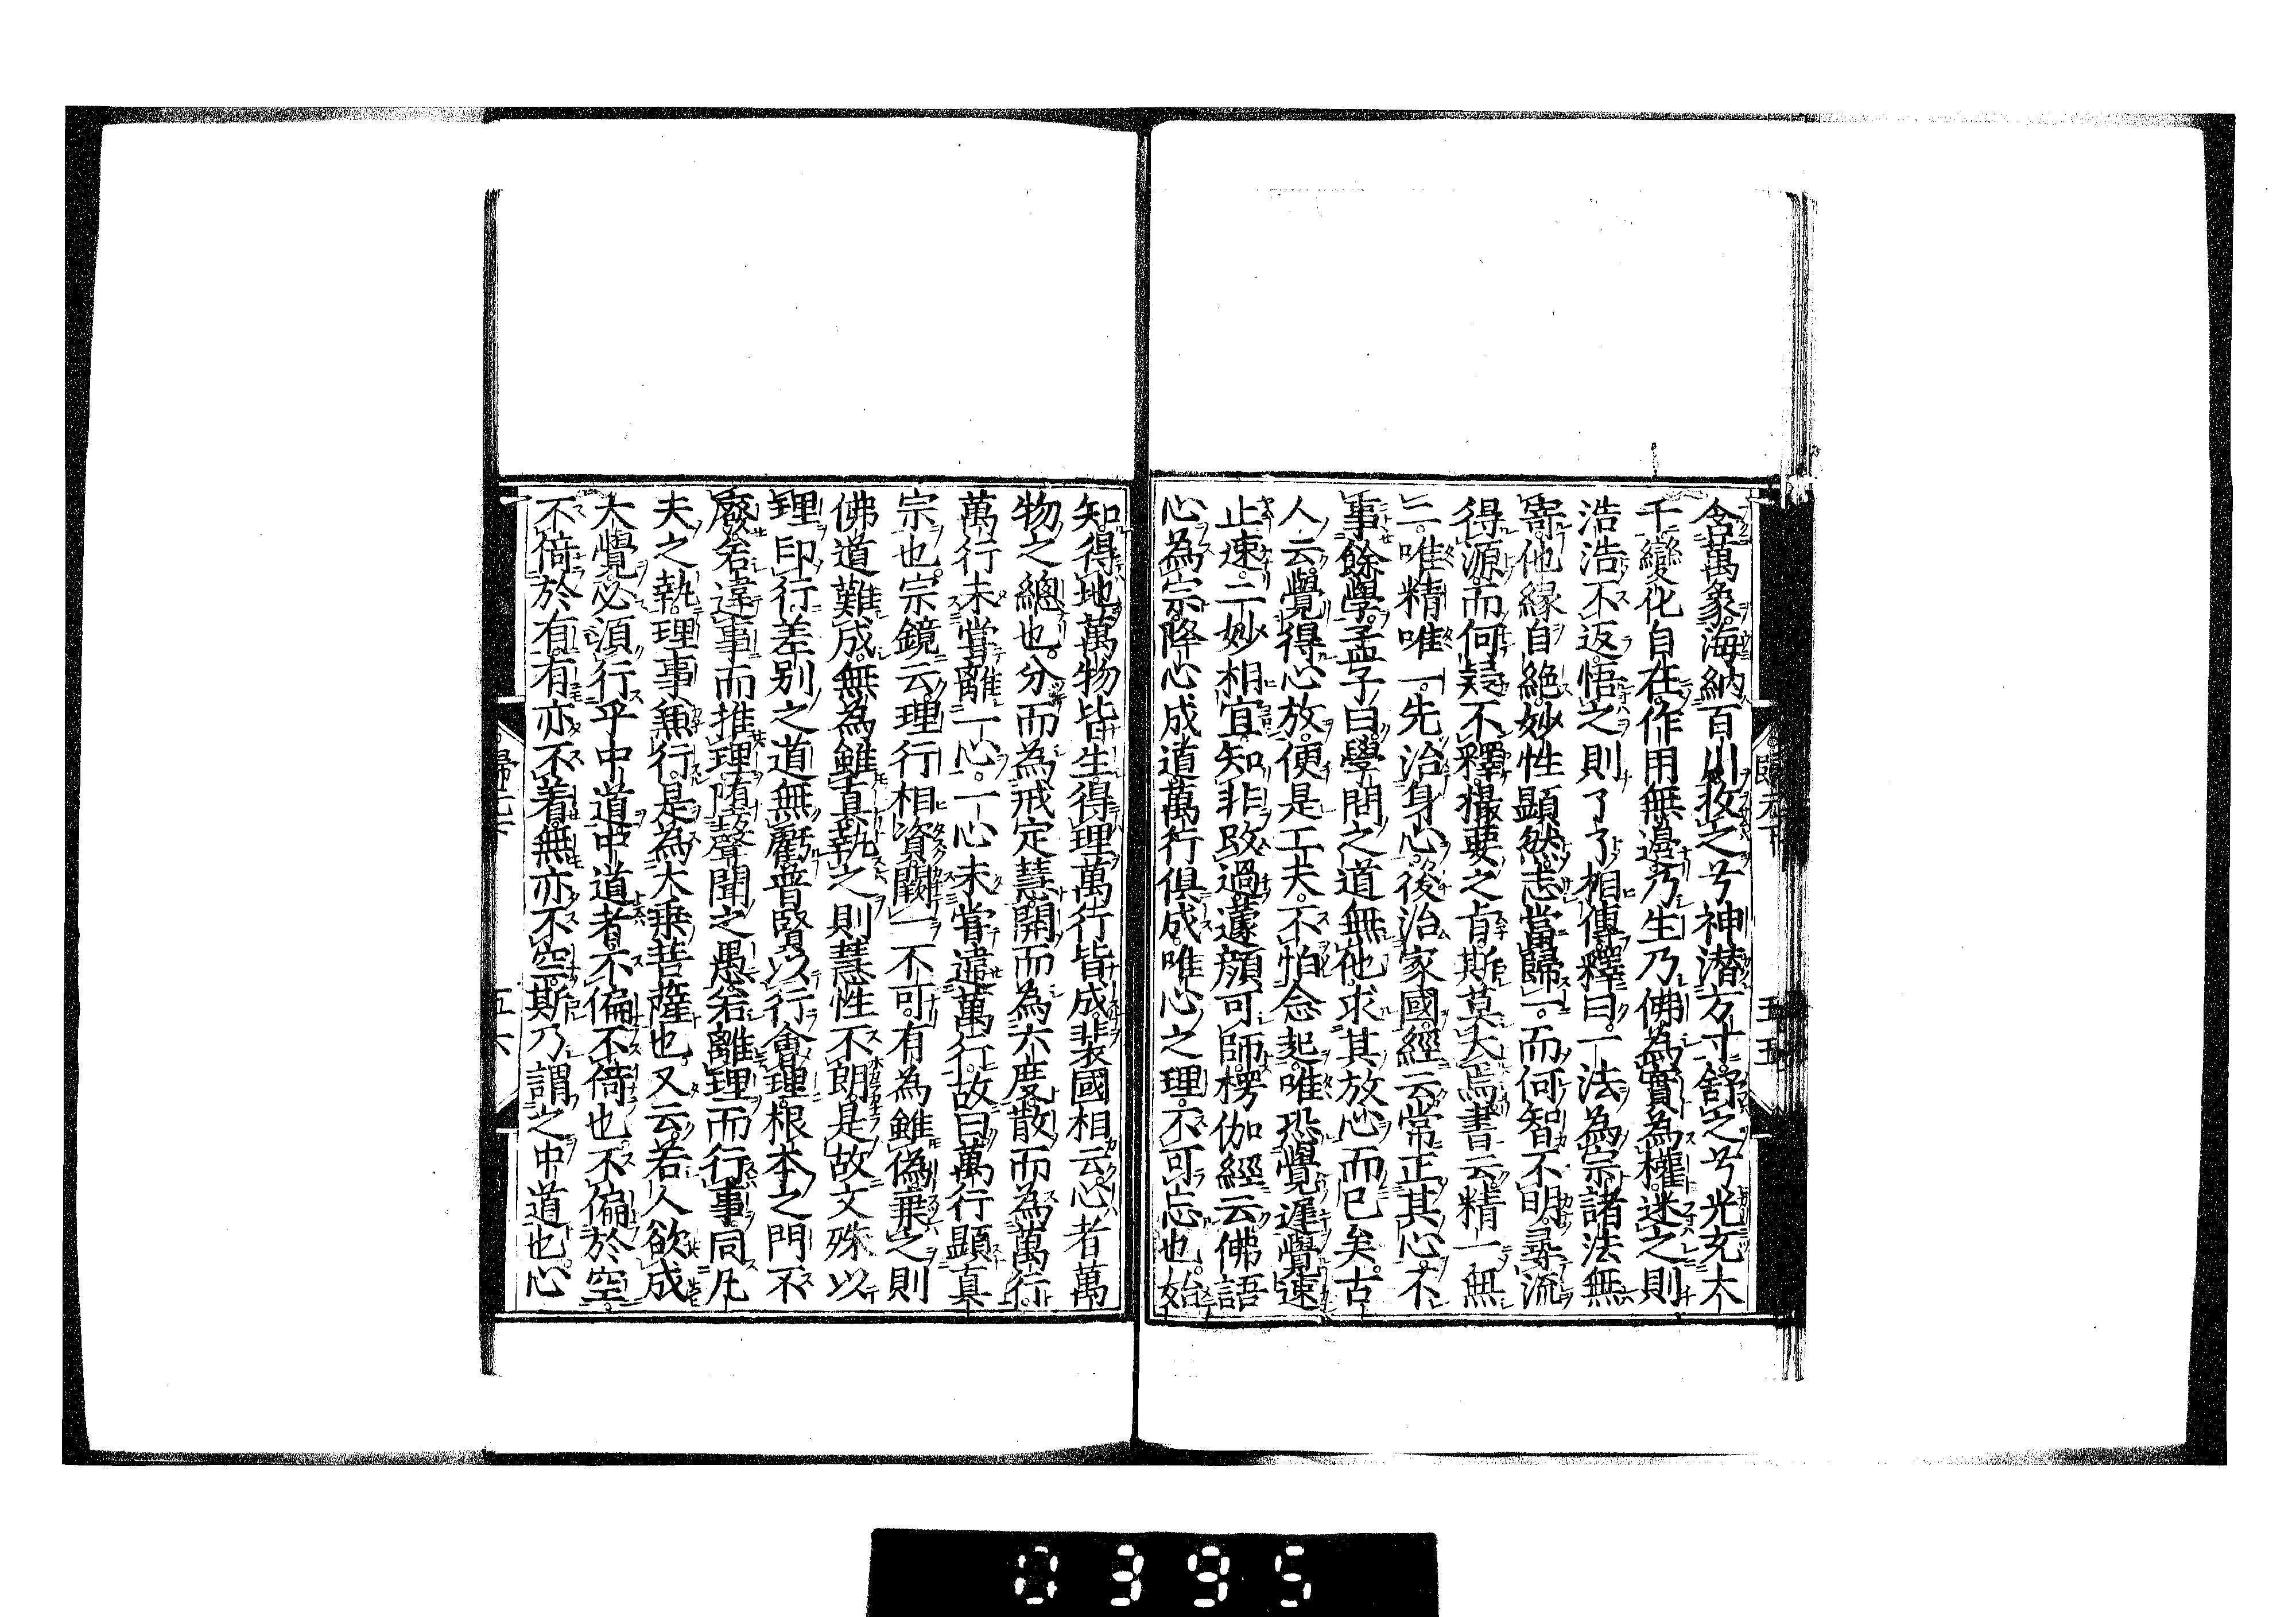 含萬象。海納百川。收之兮神潜方寸。舒之兮光充大
千。變化自在。作用無邊。乃生乃佛。為實為權。迷之則
浩浩不返。悟之則了了相傳。釋曰。一法為宗。諸法無
寄。他縁自絶。妙性顕然。志當歸一。而何智不明。尋流
得源。而何疑不釋。撮要之㫖。斯莫大焉。書云。精一無
二。唯精唯一。先治身心。後治家國。經云。常正其心。不
事餘學。孟子曰。學問之道無他。求其放心而已矣。古
人云。覺得心放。便是工夫。不怕念起。唯恐覺遲。覺速
止速。二妙相宜。知非改過。蘧顔可師。楞伽經云。佛語
心為宗。降心成道。萬行倶成。唯心之理。不可忘也。始
知得地萬物皆生。得理萬行皆成。裴國相云。心者萬
物之總也。分而為戒定慧。開而為六度。散而為萬行。
萬行未嘗離一心。一心未嘗違萬行。故曰萬行顯真
宗也。宗鏡云。理行相資。闕一不可。有為雖偽。棄之則
佛道難成。無為雖真。執之則慧性不朗。是故文殊以
理印行。差別之道無虧。普賢以行會理。根本之門不
廢。若違事而推理。墮聲聞之愚。若離理而行事。同凡
夫之執。理事兼行。是為大乗菩薩也。又云。若人欲成
大覺。必須行乎中道。中道者。不偏不倚也。不偏於空。
不倚於有。有亦不着。無亦不空。斯乃謂之中道也。心
歸元下
五六
五五
0395